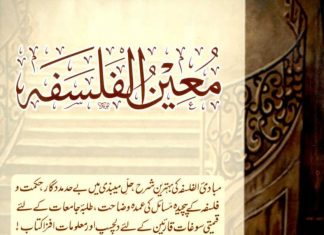 مُعینُ الفلسفہ
مبادیٔ الفلسفہ کی بہترین شرح حل میبذی میں بے حد مددگار، حکمت و
فلسفہ کے پیچیدہ مسائل کی عمدہ وضاحت، طلبۂ جامعات کے لئے
قیمتی سوغات قارئین کے لئے دلچسپ اور معلومات افزا کتاب!